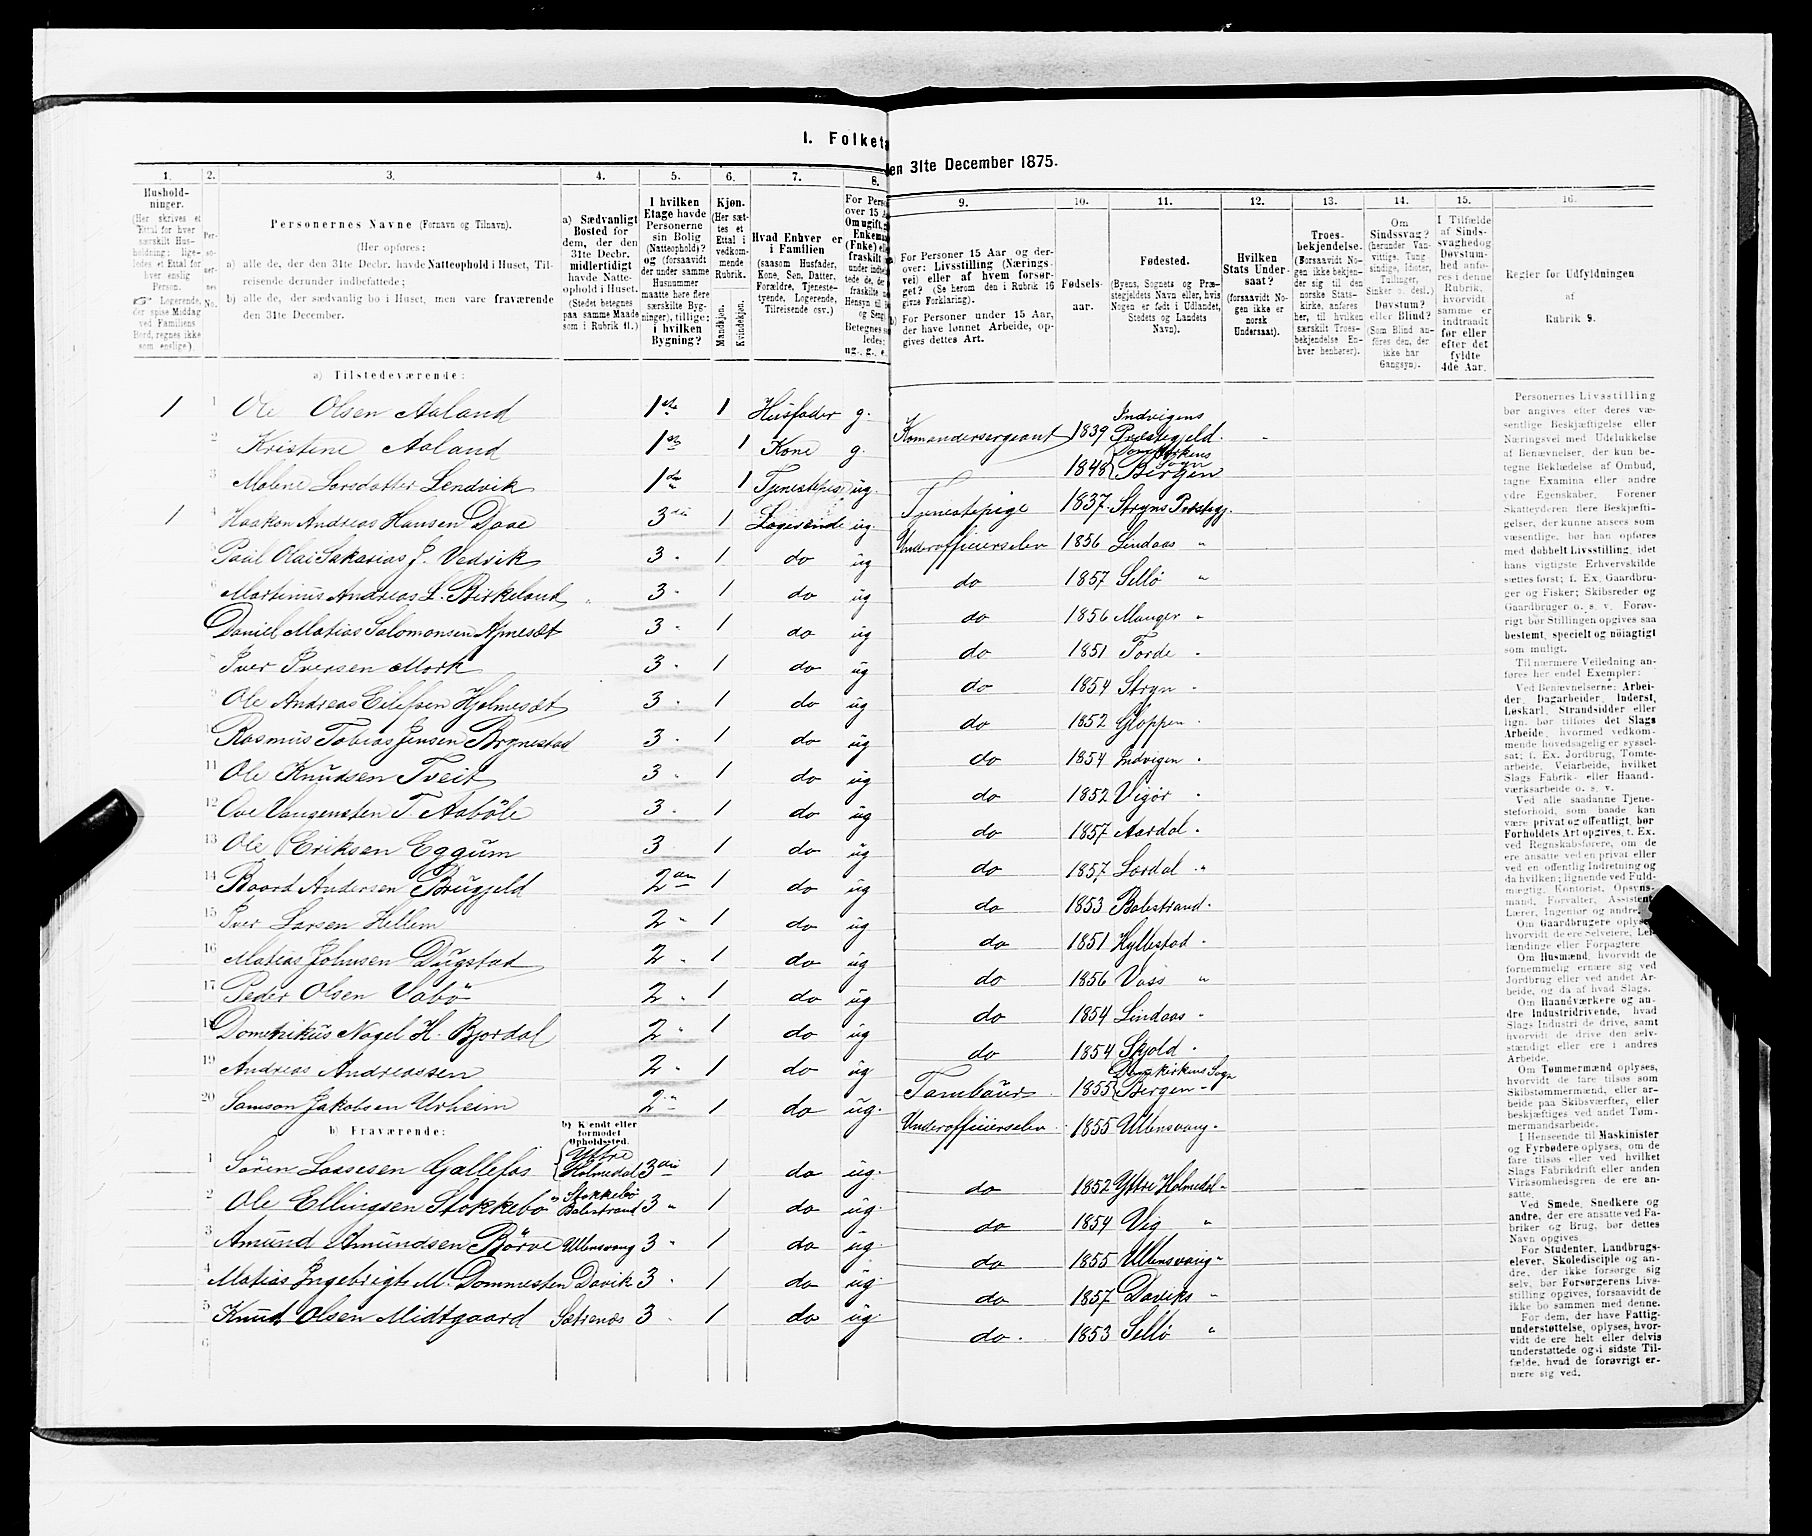 I. Folketa
en 31te December 1875.
1. 2. 3. 4. 5. 6. 7. 8. 9. 10. 11. 12. 13. 14. 15. 16.
Hushold-
ninger.
(Her skrives et
Ettal for hver
særskilt Hus-
holdning; lige-
ledes et Ettal for
hver enslig
Person.
Logerende,
der spise Middag
ved Familiens
Bord, regnes ikke
som enslige).
Personernes Navne (Fornavn og Tilnavn).
(Her opføres:
a) alle de, der den 31te Decbr. havde Natteophold i Huset, Til-
reisende derunder indbefattede;
b) alle de, der sædvanlig bo i Huset, men vare fraværende
den 31te December.
a) Sædvanligt
Bosted for
dem, der den
31te Decbr.
midlertidigt
havde Natte-
ophold i Huset.
(Stedet betegnes
paa samme Maade
som i Rubrik 11.)
I hvilken
Etage havde
Personerne
sin Bolig
(Natteophold)?
og (forsaavidt
der under samme
Husnummer
maatte høre flere
særskilte Byg-
ninger), tillige:
i hvilken
Bygning?
Kjøn.
(Her sæt-
tes et
Ettal i
vedkom-
mende
Rubrik.
Mandkjøn.
Kvindekjøn.
Hvad Enhver er
i Familien
(saasom Husfader,
Kone, Søn, Datter,
Forældre, Tjeneste-
tyende, Logerende,
Tilreisende osv.)
For Personer 15 Aar og der-
over: Livsstilling (Nærings-
vei) eller af hvem forsør-
get? (Se herom den i Rubrik 16
givne Forklaring).
b) For Personer under 15 Aar,
der have lønnet Arbeide, op-
gives dettes Art.
Fødsels-
aar.
Fødested.
(Byens, Sognets og Præ-
stegjeldets Navn eller, hvis
Nogen er født i Udlandet,
Stedets og Landets
Navn).
Hvilken
Stats Under-
saat?
(forsaavidt No-
gen ikke er
norsk
Undersaat).
Troes-
bekjendelse.
(Forsaavidt No-
gen ikke bekjen-
der sig til den
norske Stats-
kirke, anføres
her, til hvilken
særskilt Troes-
bekjendelse En-
hver henhører).
Om
Sindssvag?
(herunder Van-
vittige, Tung-
sindige, Idioter,
Tullinger,
Sinker o. desl.)
Døvstum?
eller Blind?
(Som Blind an-
føres den, der
ikke har
Gangsyn).
I Tilfælde
af Sinds-
svaghed og
Døvstum-
hed anfø-
res i denne
Rubrik,
hvorvidt
samme er
indtraadt
før eller
efter det
fyldte
4de Aar.
Regler for Udfyldningen
af
Rubrik 9.
a) Tilstedeværende:
1 1 Ole Olsen Aaland 1ste 1 Husfader g. Komandersergeant 1839 Indvigens Præstegjeld.
2 Kristene Aaland 1ste 1 Kone g. 1848 Domkirkens Sogn Bergen
3 Malene Larsdatter Lendvik 1ste 1 Tjenestepige ug. Tjenestepige 1837 Stryns Præstegj.
1 4 Haakon Andreas Hansen Daae 3die 1 Logerende ug. Underofficierselev 1856 Lindaas "
5 Paul Olai Sakarias J. Vedvik 3 " 1 do ug do 1857 Sellø "
6 Martinus Andreas L. Birkeland 3 " 1 do ug do 1856 Manger "
Daniel Matias Salomonsen 3 " 1 do ug do 1851 Førde "
8 Iver Iversen Mork 3 " 1 do ug do 1854 Stryn "
9 Ole Andreas Eilefsen Hjelmesæt 3 " 1 do ug do 1852 Gloppen "
Rasmus Tobias Jensen Brynestad 3 " 1 do ug do 1854 Indvigen "
11 Ole Knudsen Tveit 3 " 1 do ug do 1852 Vigør "
12 Ove Vangensten T. Aabøle 3 " 1 do ug do 1857 Aardal "
13 Ole Eriksen Eggum 3 1 do ug do 1857 Lærdal "
14 Baard Andersen 2den 1 do ug do 1853 Balestrand "
15 Iver Larsen Hellem 2 " 1 do ug do 1851 Hyllestad "
16 Matias Johnsen Dugstad 2 " 1 do ug do 1856 Voss "
17 Peder Olsen Vabø 2 " 1 do ug do 1854 Lindaas "
18 Domenikus Nagel H. Bjordal 2 " 1 do ug do 1854 Skjold "
19 Andreas Andreassen 2 " 1 do ug Tambour 1855 Domkirkens Sogn Bergen "
20 Samson Jakobsen Urheim 2 " 1 do ug. Underofficierselev 1855 Ullensvang "
b) Fraværende:
b) Kjendt eller
formodet
Opholdssted.
1 Søren Lassesen Gallefos Yttre Holmedal 3die 1 do ug. do 1852 Yttre Holmedal "
2 Ole Ellingsen Stokkebø Stokkebø Balestrand 3 " 1 do ug. do 1854 Vig "
3 Amund Amundsen Børve Ullensvang 3 " 1 do ug. do 1855 Ullensvang "
4 Matias Ingebrigt M. Dommesten Davik 3 " 1 do ug. do 1857 Daviks "
5 Knud Olsen Midtgaard Sætrenæs 3 " 1 do ug. do. 1853 Sellø "
6
Personernes Livsstilling
bør angives efter deres væ-
sentlige Beskjæftigelse eller
Næringsvei med Udelukkelse
af Benævnelser, der kun be-
tegne Beklædelse af Ombud,
tagne Examina eller andre
ydre Egenskaber. Forener
Skatteyderen flere Beskjæfti-
gelser, der kunne ansees som
væsentlige, bør han opføres
med dobbelt Livsstilling, idet
hans vigtigste Erhvervskilde
sættes først; f. Ex. Gaardbru-
ger og Fisker; Skibsreder og
Gaardbruger o. s. v. Forøv-
rigt bør Stillingen opgives saa
bestemt, specielt og nöiagtigt
som muligt.
Til nærmere Veiledning an-
føres her endel Exempler:
Ved Benævnelserne: Arbei-
der, Dagarbeider, Inderst,
Løskarl, Strandsidder eller
lign. bør tilføies det Slags
Arbeide, hvormed vedkom-
mende hovedsagelig er syssel-
sat; f. Ex. Jordbrug, Tomte-
arbeide, Veiarbeide, hvilket
Slags Fabrik- eller Haand-
værksarbeide o. s. v.
Ved alle saadanne Tjene-
steforhold, som baade kan
være privat og offentligt, bør
Forholdets Art opgives, f. Ex.
ved Regnskabsførere, om de
ere ansatte ved en privat eller
ved en offentlig Indretning og
da hvilken; lignende ved Fuld-
mægtig, Kontorist, Opsyns-
mand, Forvalter, Assistent,
Lærer, Ingeniør og andre.
Om Gaardbrugere oplyses,
hvorvidt de ere Selveiere, Lei-
lændinge eller Forpagtere
Om Husmænd, hvorvidt de
fornemmelig ernære sig ved
Jordbrug eller ved andet Ar-
beide, og da af hvad Slags.
Om Haandværkere og an-
dre Industridrivende, hvad
Slags Industri de drive, samt
hvorvidt de drive den selv-
stændigt eller ere i andres
Arbeide.
Om Tømmermænd oplyses,
hvorvidt de fare tilsøs som
Skibstømmermænd, eller ar-
beide paa Skibsværfter, eller
beskjæftiges ved andet Tøm-
mermandsarbeide.
I Henseende til Maskinister
og Fyrbødere oplyses, om de
fare tilsøs eller ved hvilket
Slags Fabrikdrift eller anden
Virksomhedsgren de ere an-
satte.
Ved Smede, Snedkere og
andre, der ere ansatte ved Fa-
briker og Brug, bør dettes
Navn opgives.
For Studenter, Landbrugs-
elever, Skoledisciple og an-
dre, der ikke forsørge sig
selv, bør Forsørgerens Livs-
stilling opgives, forsaavidt de
ikke bo sammen med denne.
For dem, der have Fattig-
understøttelse, oplyses, hvor-
vidt de ere helt eller delvis
understøttede og i sidste Til-
fælde, hvad de forøvrigt er-
nære sig ved.